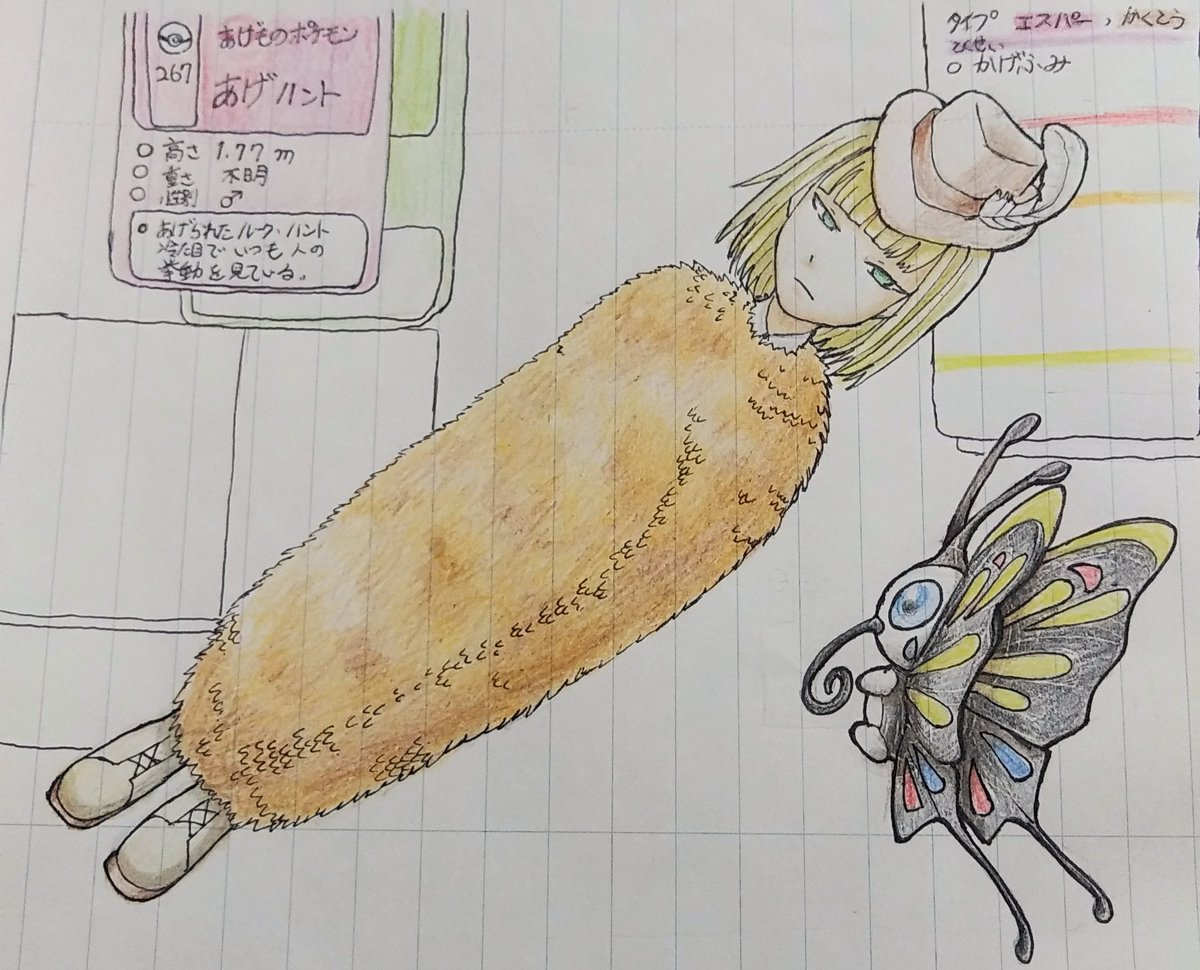 267
あげものポケモン
あげハント
○ 高さ 1.77m
○ 重さ 不明
○ 性別 ♂
● あげられたルーク・ハント
冷た目でいつも人の
挙動を見ている。
タイプ エスパー, かくとう
とくせい
○ かげふみ